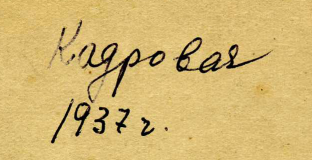 Кадровая
1937 г.